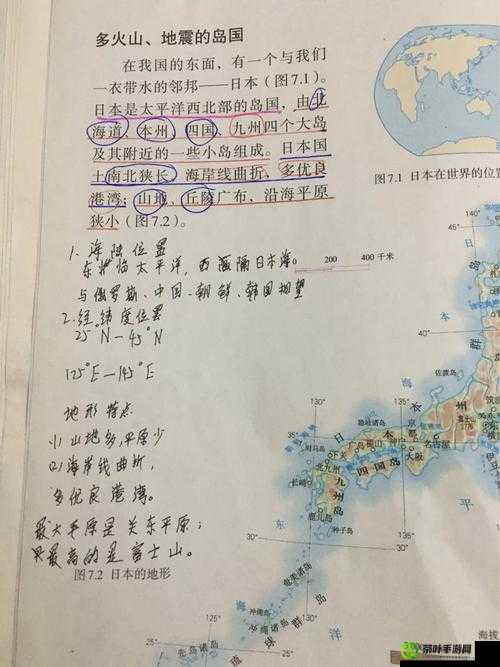 多火山、地震的岛国
在我国的东面,有一个与我们
一衣带水的邻邦——日本(图7.1)。
日本是太平洋西北部的岛国,由北
海道、本州、四国、九州四个大岛
及其附近的一些小岛组成。日本国
土南北狭长,海岸线曲折、多优良
港湾;山地、丘陵广布,沿海平原
狭小(图7.2)。
图7.1 日本在世界的位置
1. 海陆位置
东临太平洋,西隔日本海
与俄罗斯、中国、朝鲜、韩国相望
2. 经纬度位置
25°N—45°N
125°E—145°E
地形特点
(1) 山地多,平原少
(2) 海岸线曲折,
多优良港湾。
最大平原是关东平原;
最高的是富士山。
图7.2 日本的地形
0 200 400千米
140°
45°
日
本
群
40°
海
佐渡岛
135°
130°
本
州
隐岐诸岛
35°
对马岛
日
京都
名古屋
富士山
3776
广岛
神户
大阪
下关
北九州
四国岛
长崎
九州岛
鹿儿岛
种子岛
平
东
30°
135°
30°
奄美诸岛
海
冲绳岛
冲绳诸岛
琉球群岛
洋
125°
25°
先岛诸岛
130°
25°
海拔
茶叶手游网